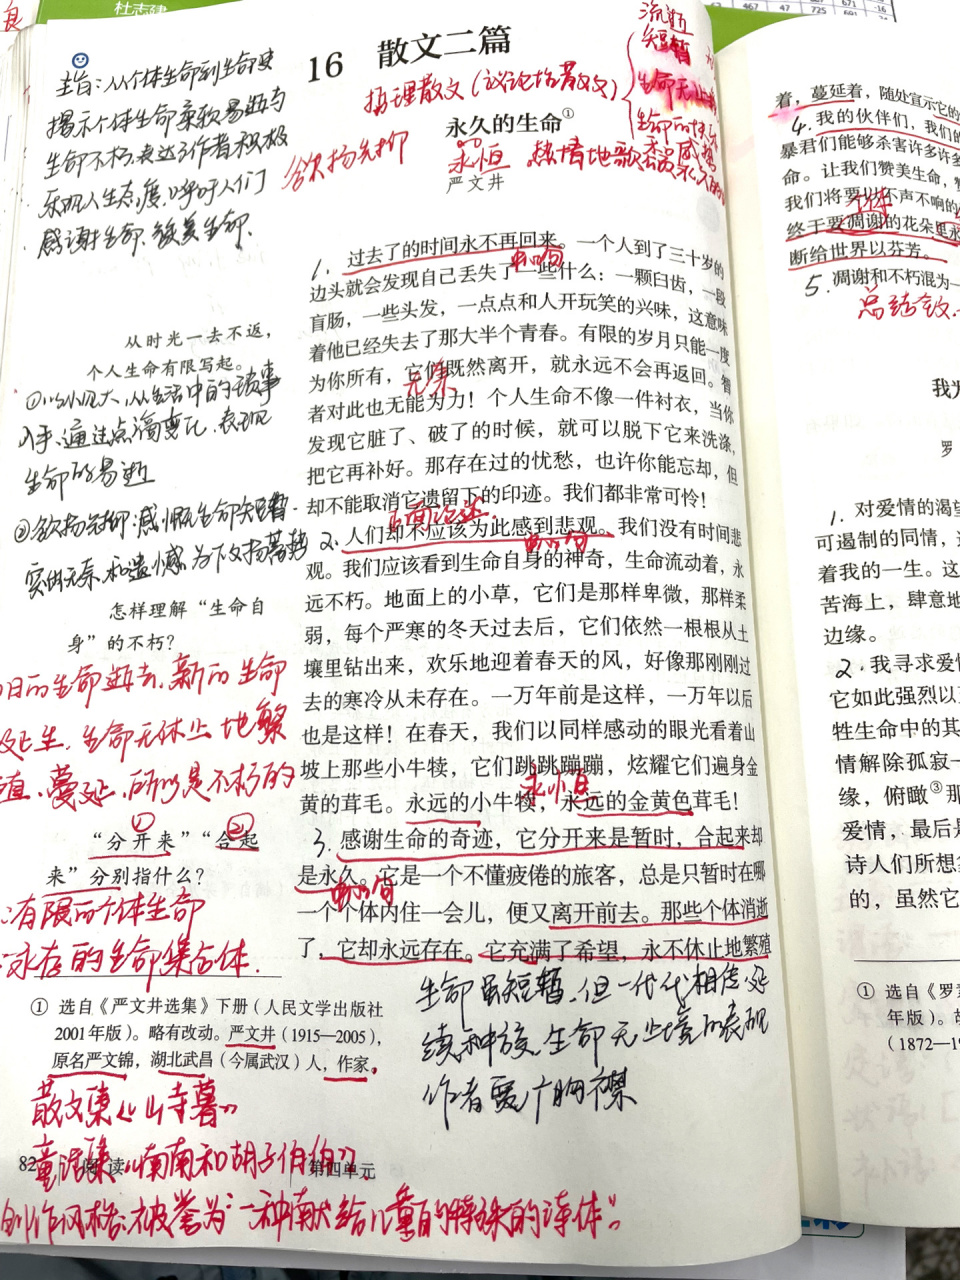 杜志建
467 47 725 691
671 -16
16 散文二篇
哲理散文(议论性散文)
流逝
短暂
永久的生命①
欲扬先抑
永恒
热情地歌
严文井
主旨:从个体生命到生命史
揭示个体生命柔软易逝与
生命不朽,表达了作者积极
乐观人生态度,呼吁人们
感谢生命、赞美生命.
1. 过去了的时间永不再回来。一个人到了三十岁的
中心句
边头就会发现自己丢失了一些什么:一颗臼齿,一段
盲肠,一些头发,一点点和人开玩笑的兴味,这意味
着他已经失去了那大半个青春。有限的岁月只能一度
为你所有,它们既然离开,就永远不会再返回。智
者对此也无能为力!个人生命不像一件衬衣,当你
发现它脏了、破了的时候,就可以脱下它来洗涤,
把它再补好。那存在过的忧愁,也许你能忘却,但
却不能取消它遗留下的印迹。我们都非常可怜!
2. 人们却不应该为此感到悲观。我们没有时间悲
中心句
观。我们应该看到生命自身的神奇,生命流动着,永
远不朽。地面上的小草,它们是那样卑微,那样柔
弱,每个严寒的冬天过去后,它们依然一根根从土
壤里钻出来,欢乐地迎着春天的风,好像那刚刚过
去的寒冷从未存在。一万年前是这样,一万年以后
也是这样!在春天,我们以同样感动的眼光看着山
坡上那些小牛犊,它们跳跳蹦蹦,炫耀它们遍身金
黄的茸毛。永远的小牛犊,永远的金黄色茸毛!
永恒
3. 感谢生命的奇迹,它分开来是暂时,合起来却
是永久。它是一个不懂疲倦的旅客,总是只暂时在哪
中心句
一个个体内住一会儿,便又离开前去。那些个体消逝
了,它却永远存在。它充满了希望,永不休止地繁殖
生命虽短暂,但一代代相传,延
续种族,生命无止境的表现
作者宽广胸襟
从时光一去不返,
个人生命有限写起。
①以小见大,从生活中的琐事
入手,通过点滴变化,表现
生命的易逝
②欲扬先抑:感慨生命短暂.
和遗憾,为下文扬蓄势
怎样理解“生命自
身”的不朽?
旧的生命逝去,新的生命
诞生,生命无休止地繁
殖、蔓延,所以是不朽的
① ②
“分开来”“合起
来”分别指什么?
:有限的个体生命
:永存的生命集合体.
① 选自《严文井选集》下册(人民文学出版社
2001年版)。略有改动。严文井(1915—2005),
原名严文锦,湖北武昌(今属武汉)人,作家。
散文集《山寺暮》
童话集《南南和胡子伯伯》
82 阅读 第四单元
创作风格:被誉为“一种献给儿童的特殊的诗体”.
着,蔓延着,随处宣示它的
4. 我的伙伴们,我们的
暴君们能够杀害许多许多
命。让我们赞美生命,赞
我们将要以不声不响的
个体
终于要凋谢的花朵里永
断给世界以芬芳。
5. 凋谢和不朽混为一
总结全文.
我为
罗
1. 对爱情的渴望
可遏制的同情,这
着我的一生。这
苦海上,肆意地
边缘。
2. 我寻求爱情
它如此强烈以至
牲生命中的其
情解除孤寂—
缘,俯瞰③那
爱情,最后是
诗人们所想象
的,虽然它
① 选自《罗素
年版)。胡
(1872—19